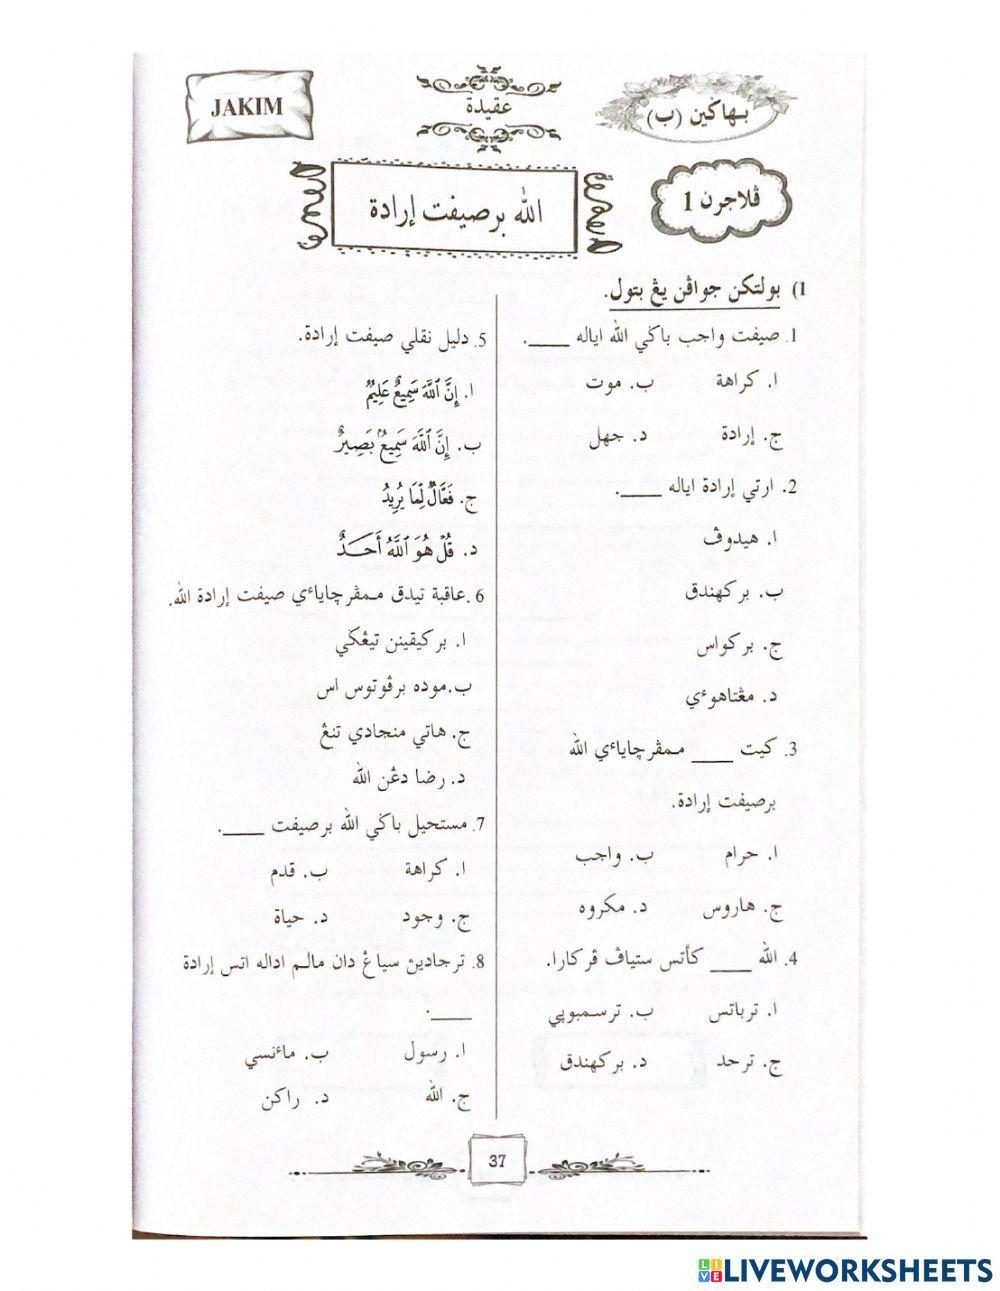 JAKIM
عقيدة
بهاڬين (ب)
ڤلاجرن 1
الله برصيفت إرادة
1) بولتكن جواڤن يڠ بتول.
1. صيفت واجب باڬي الله اياله ____.
ا. كراهة ب. موت
ج. إرادة د. جهل
2. ارتي إرادة اياله ____.
ا. هيدوڤ
ب. بركهندق
ج. بركواس
د. مڠتاهوءي
3. كيت ____ ممڤرچاياءي الله
برصيفت إرادة.
ا. حرام ب. واجب
ج. هاروس د. مكروه
4. الله ____ كأتس ستياڤ ڤركارا.
ا. ترباتس ب. ترسمبوڽي
ج. ترحد د. بركهندق
5. دليل نقلي صيفت إرادة.
ا. إِنَّ ٱللَّهَ سَمِيعٌ عَلِيمٌ
ب. إِنَّ ٱللَّهَ سَمِيعٌۢ بَصِيرٌ
ج. فَعَّالٌ لِّمَا يُرِيدُ
د. قُلْ هُوَ ٱللَّهُ أَحَدٌ
6. عاقبة تيدق ممڤرچاياءي صيفت إرادة الله.
ا. بركيقينن تيڠڬي
ب. موده برڤوتوس اس
ج. هاتي منجادي تنڠ
د. رضا دڠن الله
7. مستحيل باڬي الله برصيفت ____.
ا. كراهة ب. قدم
ج. وجود د. حياة
8. ترجاديڽ سياڠ دان مالم اداله اتس إرادة
____.
ا. رسول ب. مأنسي
ج. الله د. راكن
37
LIVEWORKSHEETS